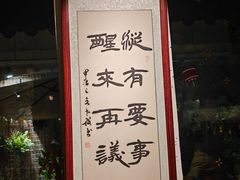 縱有要事
醒來再議